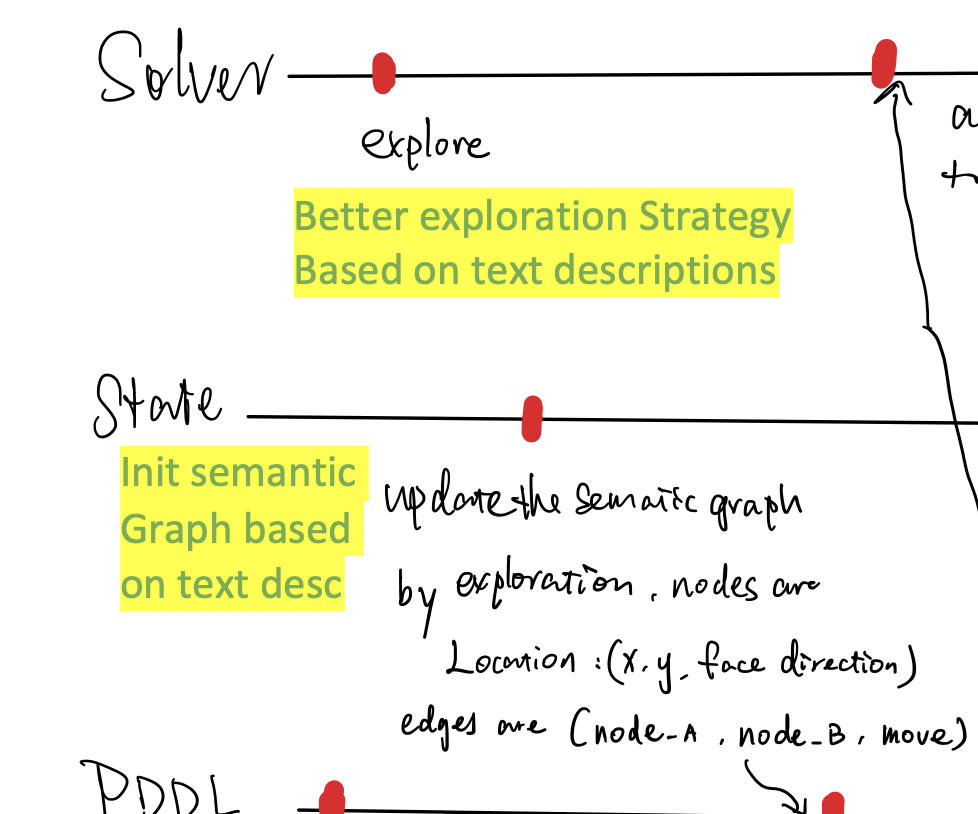 Solver
explore
a
Better exploration Strategy
Based on text descriptions
State
Init semantic
Graph based
on text desc
update the sematic graph
by exploration, nodes are
Location : (x, y, face direction)
edges are (node_A, node_B, move)
PDDL